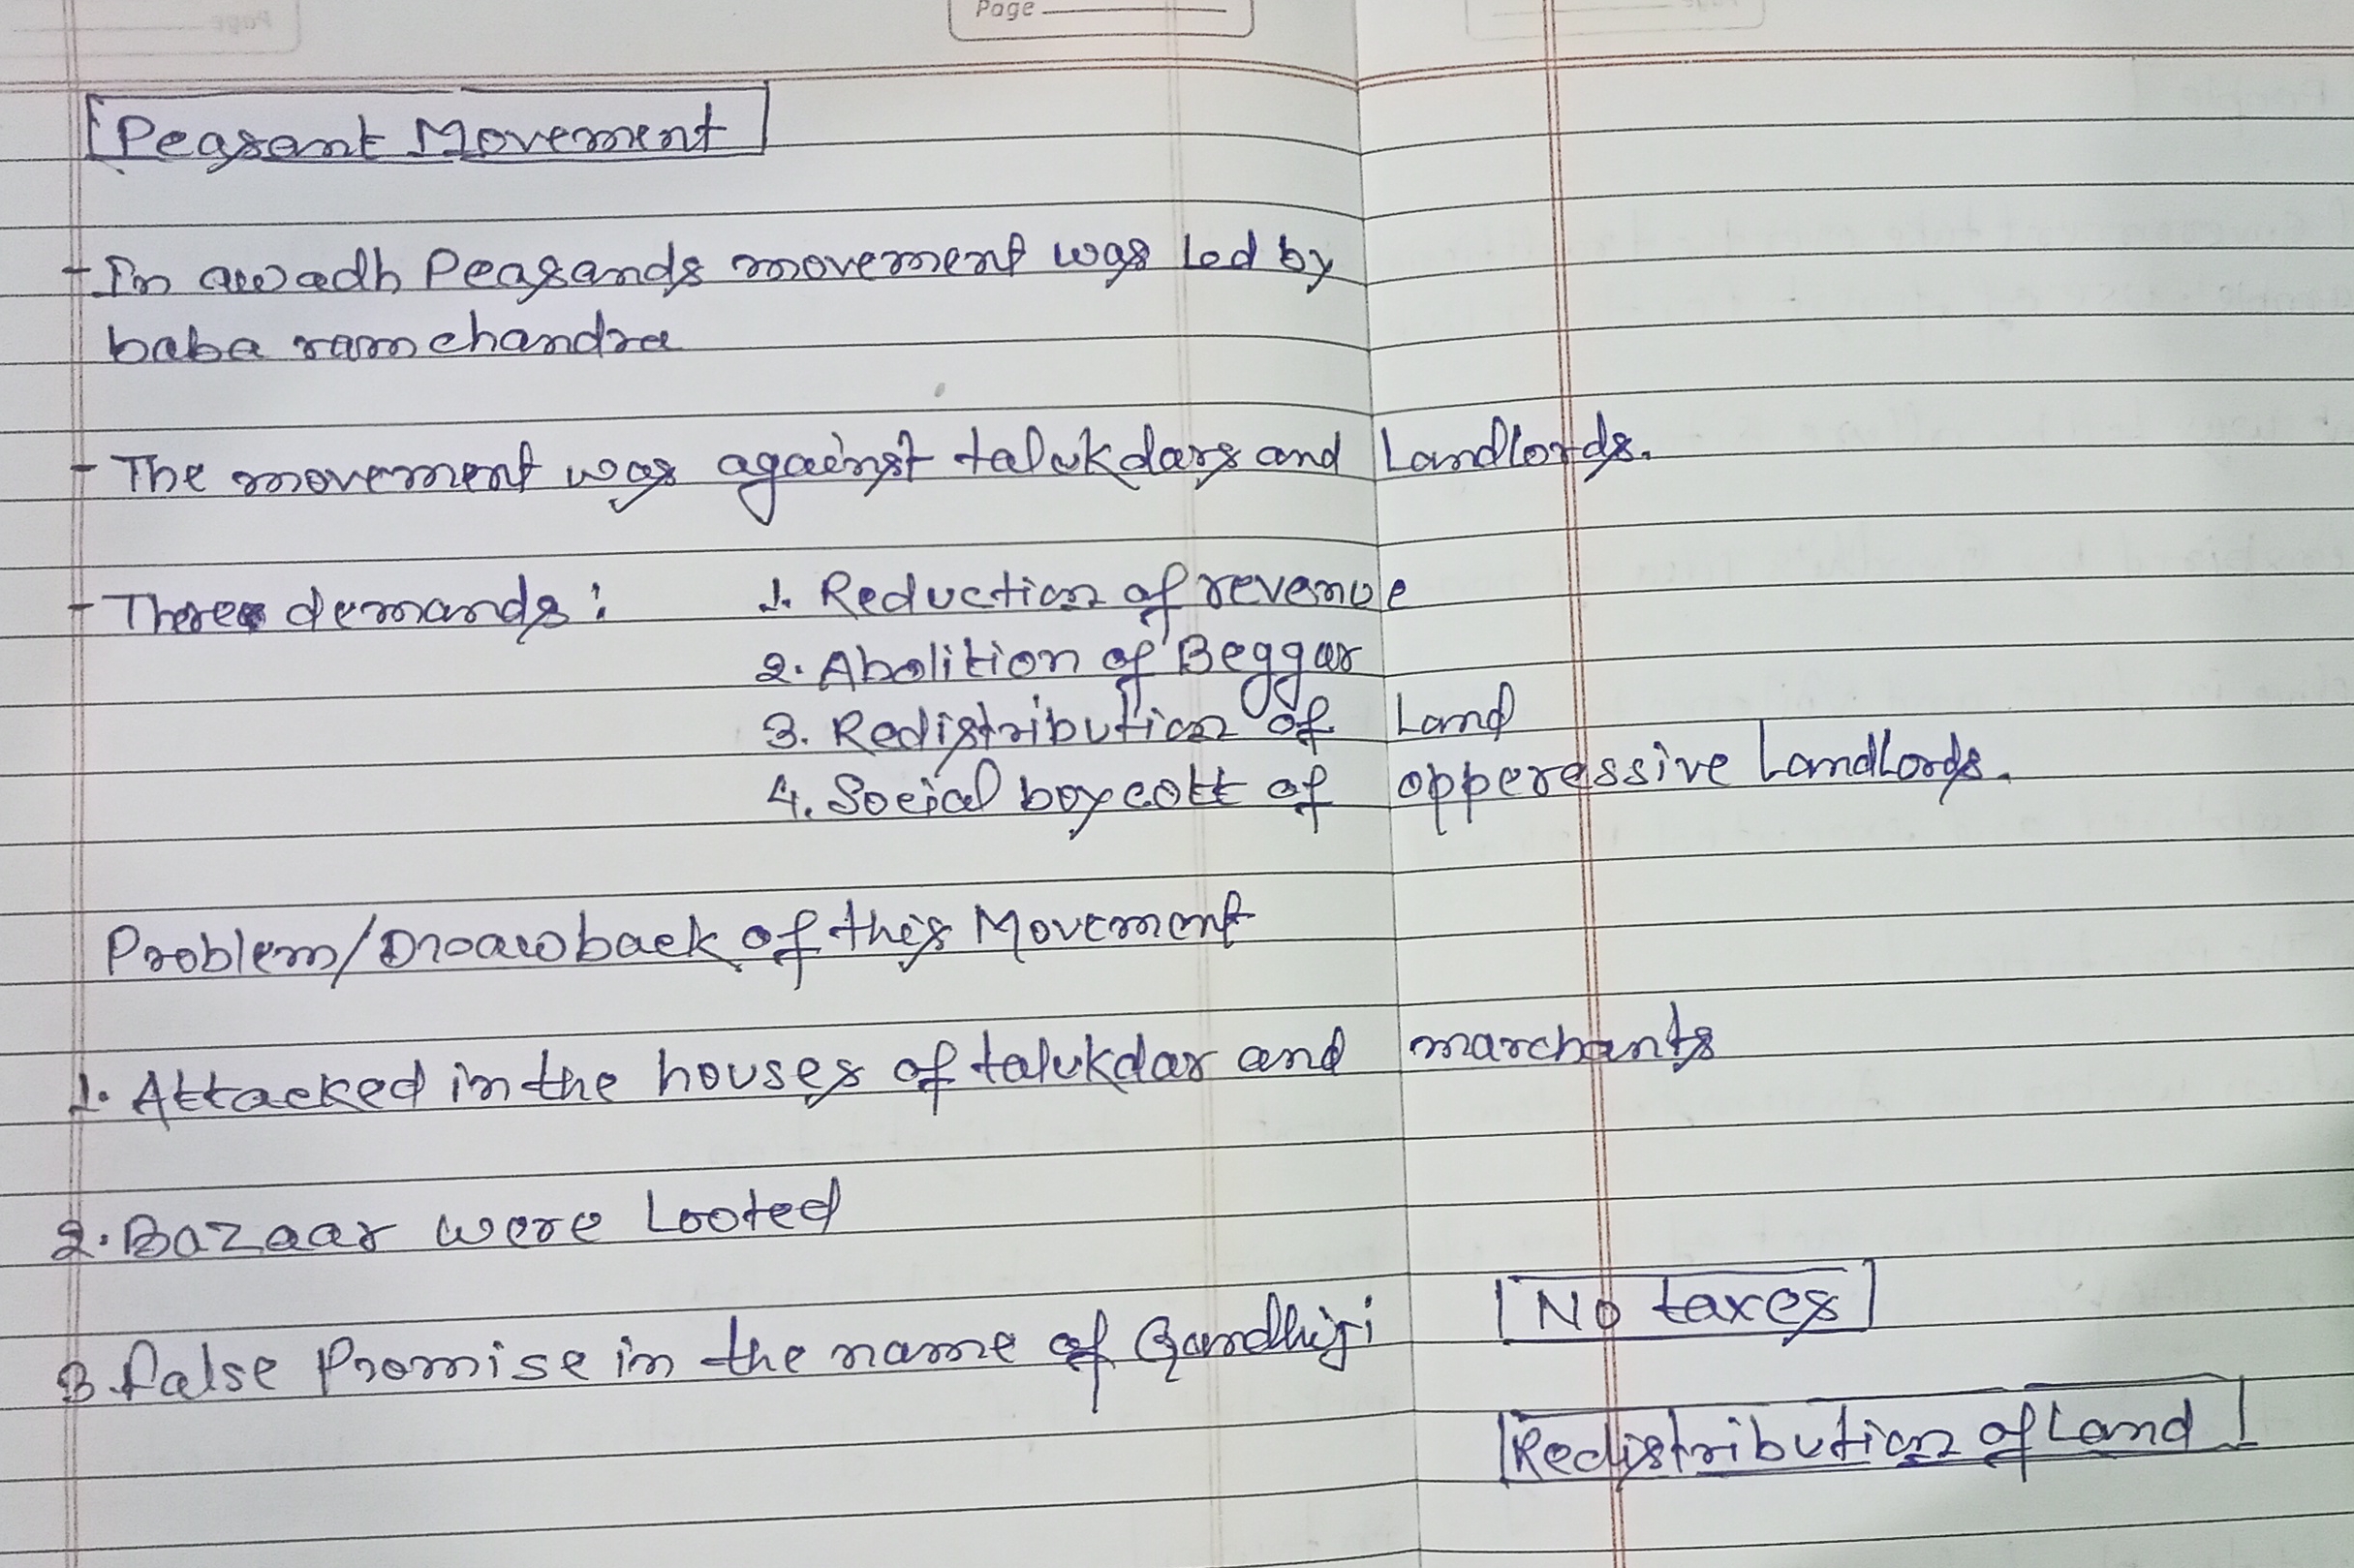 Page
Peasant Movement
- In awadh Peasands movement was Led by
baba ramchandra
- The movement was against talukdars and Landlords.
- There demands: 1. Reduction of revenue
2. Abolition of Beggar
3. Redistribution of Land
4. Social boycott of opperessive Landlords.
Problem/Drawback of this Movement
1. Attacked in the houses of talukdar and marchants
2. Bazaar were Looted
3. false Promise in the name of Gandhiji
No taxes
Redistribution of Land